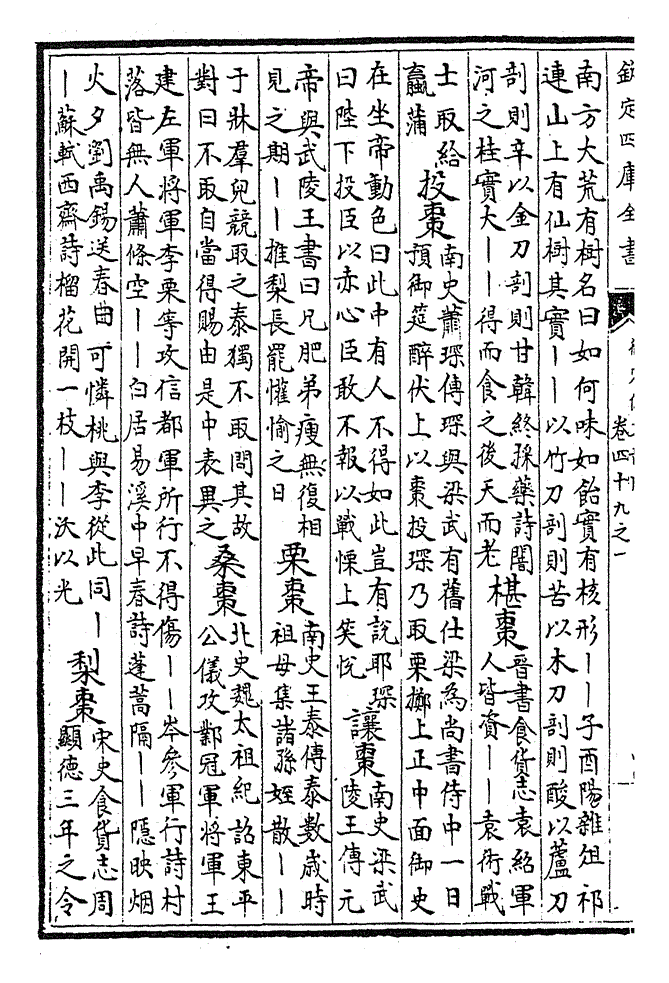 欽定四庫全書
卷四十九之一
南方大荒有樹名曰如何味如飴實有核形丨丨子酉陽雜俎祁
連山上有仙樹其實丨丨以竹刀剖則苦以木刀剖則酸以蘆刀
剖則辛以金刀剖則甘韓終採藥詩闇
河之桂實大丨丨得而食之後天而老
椹棗
晉書食貨志袁紹軍
人皆資丨丨袁術戰
士取給
蠃蒲
投棗
南史蕭琛傳琛與梁武有舊仕梁為尚書侍中一日
預御筵醉伏上以棗投琛乃取栗擲上正中面御史
在坐帝動色曰此中有人不得如此豈有說耶琛
曰陛下投臣以赤心臣敢不報以戰慄上笑悅
讓棗
南史梁武
陵王傳元
帝與武陵王書曰兄肥弟瘦無復相
見之期丨丨推梨長罷懽愉之日
栗棗
南史王泰傳泰數歲時
祖母集諸孫姪散丨丨
于牀羣兒競取之泰獨不取問其故
對曰不取自當得賜由是中表異之
桑棗
北史魏太祖紀詔東平
公儀攻鄴冠軍將軍王
建左軍將軍李栗等攻信都軍所行不得傷丨丨岑參軍行詩村
落皆無人蕭條空丨丨白居易溪中早春詩蓬蒿隔丨丨隱映烟
火夕劉禹錫送春曲可憐桃與李從此同丨
丨蘇軾西齋詩榴花開一枝丨丨沃以光
梨棗
宋史食貨志周
顯德三年之令